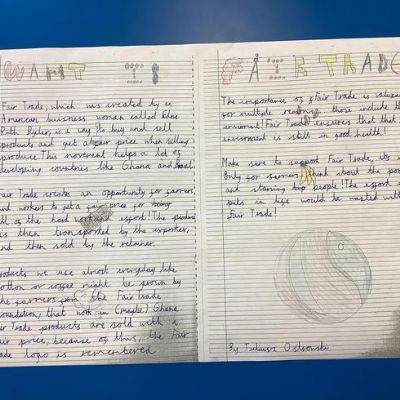 WAHT IS
Fair Trade, which was created by an
American business woman called Edna
Ruth Byler, is a way to buy and sell
products and get a fair price when selling
produce. This movement helps a lot of
developing countries like Ghana and
Fair Trade creates an opportunity for farmers,
and workers to get a fair price for being
all of the hard work and effort! The produce
is then transported by the exporter,
and then sold by the retainer.
products we use almost everyday like
cotton or coffee might be grown by
the farmers from the Fair Trade
Foundation, that work in (maybe) Ghana
Fair Trade products are sold with a
fair price, because of this, the Fair
Trade logo is remembered
FAIR TRADE
The importance of Fair Trade is valuable
for multiple reasons, those include the
enviroment! Fair Trade ensures that that
enviroment is still in good health!
Make sure to support Fair Trade, it's not
Only for farmers, think about the poor
and starving people! The effort
puts in life would be wasted without
Fair Trade!
By Juliusz Ostrowski